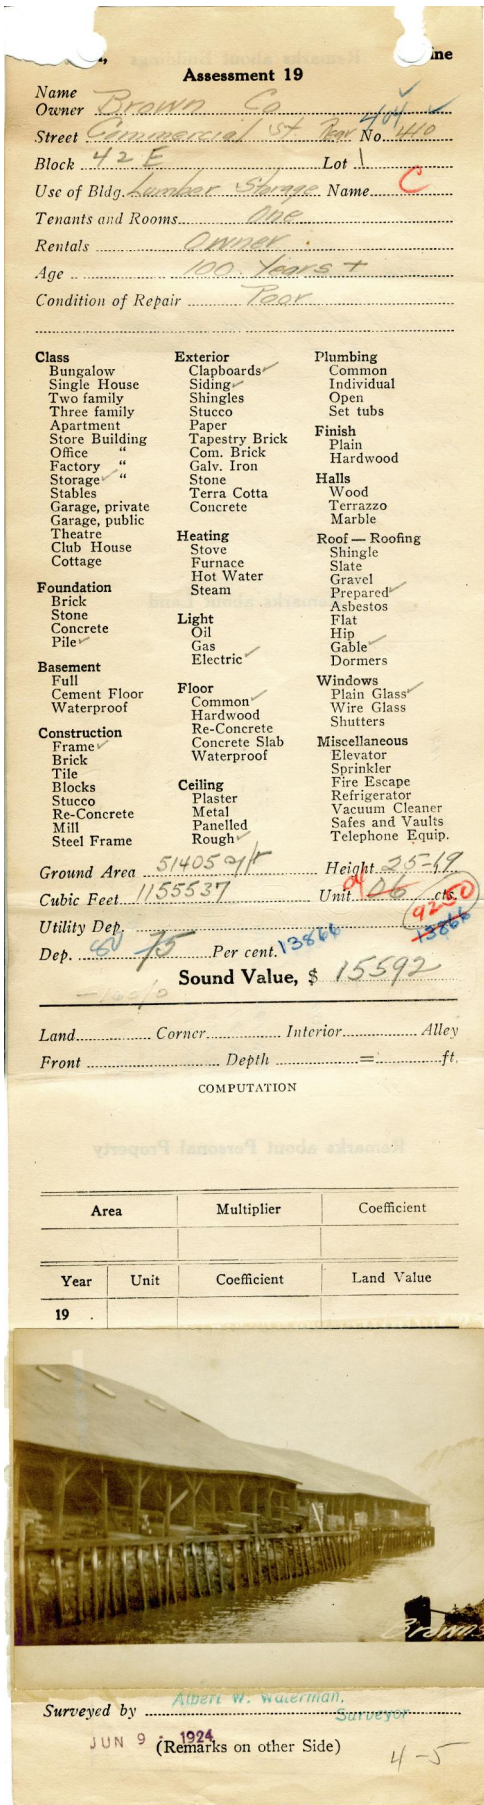 ine
Assessment 19
Name
Owner Brown Co
404
Street Commercial St. Rear No. 440
Block 42 E Lot 1
Use of Bldg. Lumber Storage Name C
Tenants and Rooms One
Rentals Owner
Age 100 Years +
Condition of Repair Poor
Class
Bungalow
Single House
Two family
Three family
Apartment
Store Building
Office "
Factory "
Storage ✓ "
Stables
Garage, private
Garage, public
Theatre
Club House
Cottage
Foundation
Brick
Stone
Concrete
Pile ✓
Basement
Full
Cement Floor
Waterproof
Construction
Frame ✓
Brick
Tile
Blocks
Stucco
Re-Concrete
Mill
Steel Frame
Exterior
Clapboards ✓
Siding ✓
Shingles
Stucco
Paper
Tapestry Brick
Com. Brick
Galv. Iron
Stone
Terra Cotta
Concrete
Heating
Stove
Furnace
Hot Water
Steam
Light
Oil
Gas
Electric ✓
Floor
Common ✓
Hardwood
Re-Concrete
Concrete Slab
Waterproof
Ceiling
Plaster
Metal
Panelled
Rough ✓
Plumbing
Common
Individual
Open
Set tubs
Finish
Plain
Hardwood
Halls
Wood
Terrazzo
Marble
Roof — Roofing
Shingle
Slate
Gravel
Prepared ✓
Asbestos
Flat
Hip
Gable ✓
Dormers
Windows
Plain Glass ✓
Wire Glass
Shutters
Miscellaneous
Elevator
Sprinkler
Fire Escape
Refrigerator
Vacuum Cleaner
Safes and Vaults
Telephone Equip.
Ground Area 51405 Height 25-19
Cubic Feet 1155537 Unit 04 06 cts.
9250
Utility Dep. 13866
Dep. 80 75 Per cent. 13866
Sound Value, $ 15592
Land Corner Interior Alley
Front Depth = ft.
COMPUTATION
Area Multiplier Coefficient
Year Unit Coefficient Land Value
19
Browns
Albert W. Waterman,
Surveyed by Surveyor
JUN 9 - 1924
(Remarks on other Side)
4-5